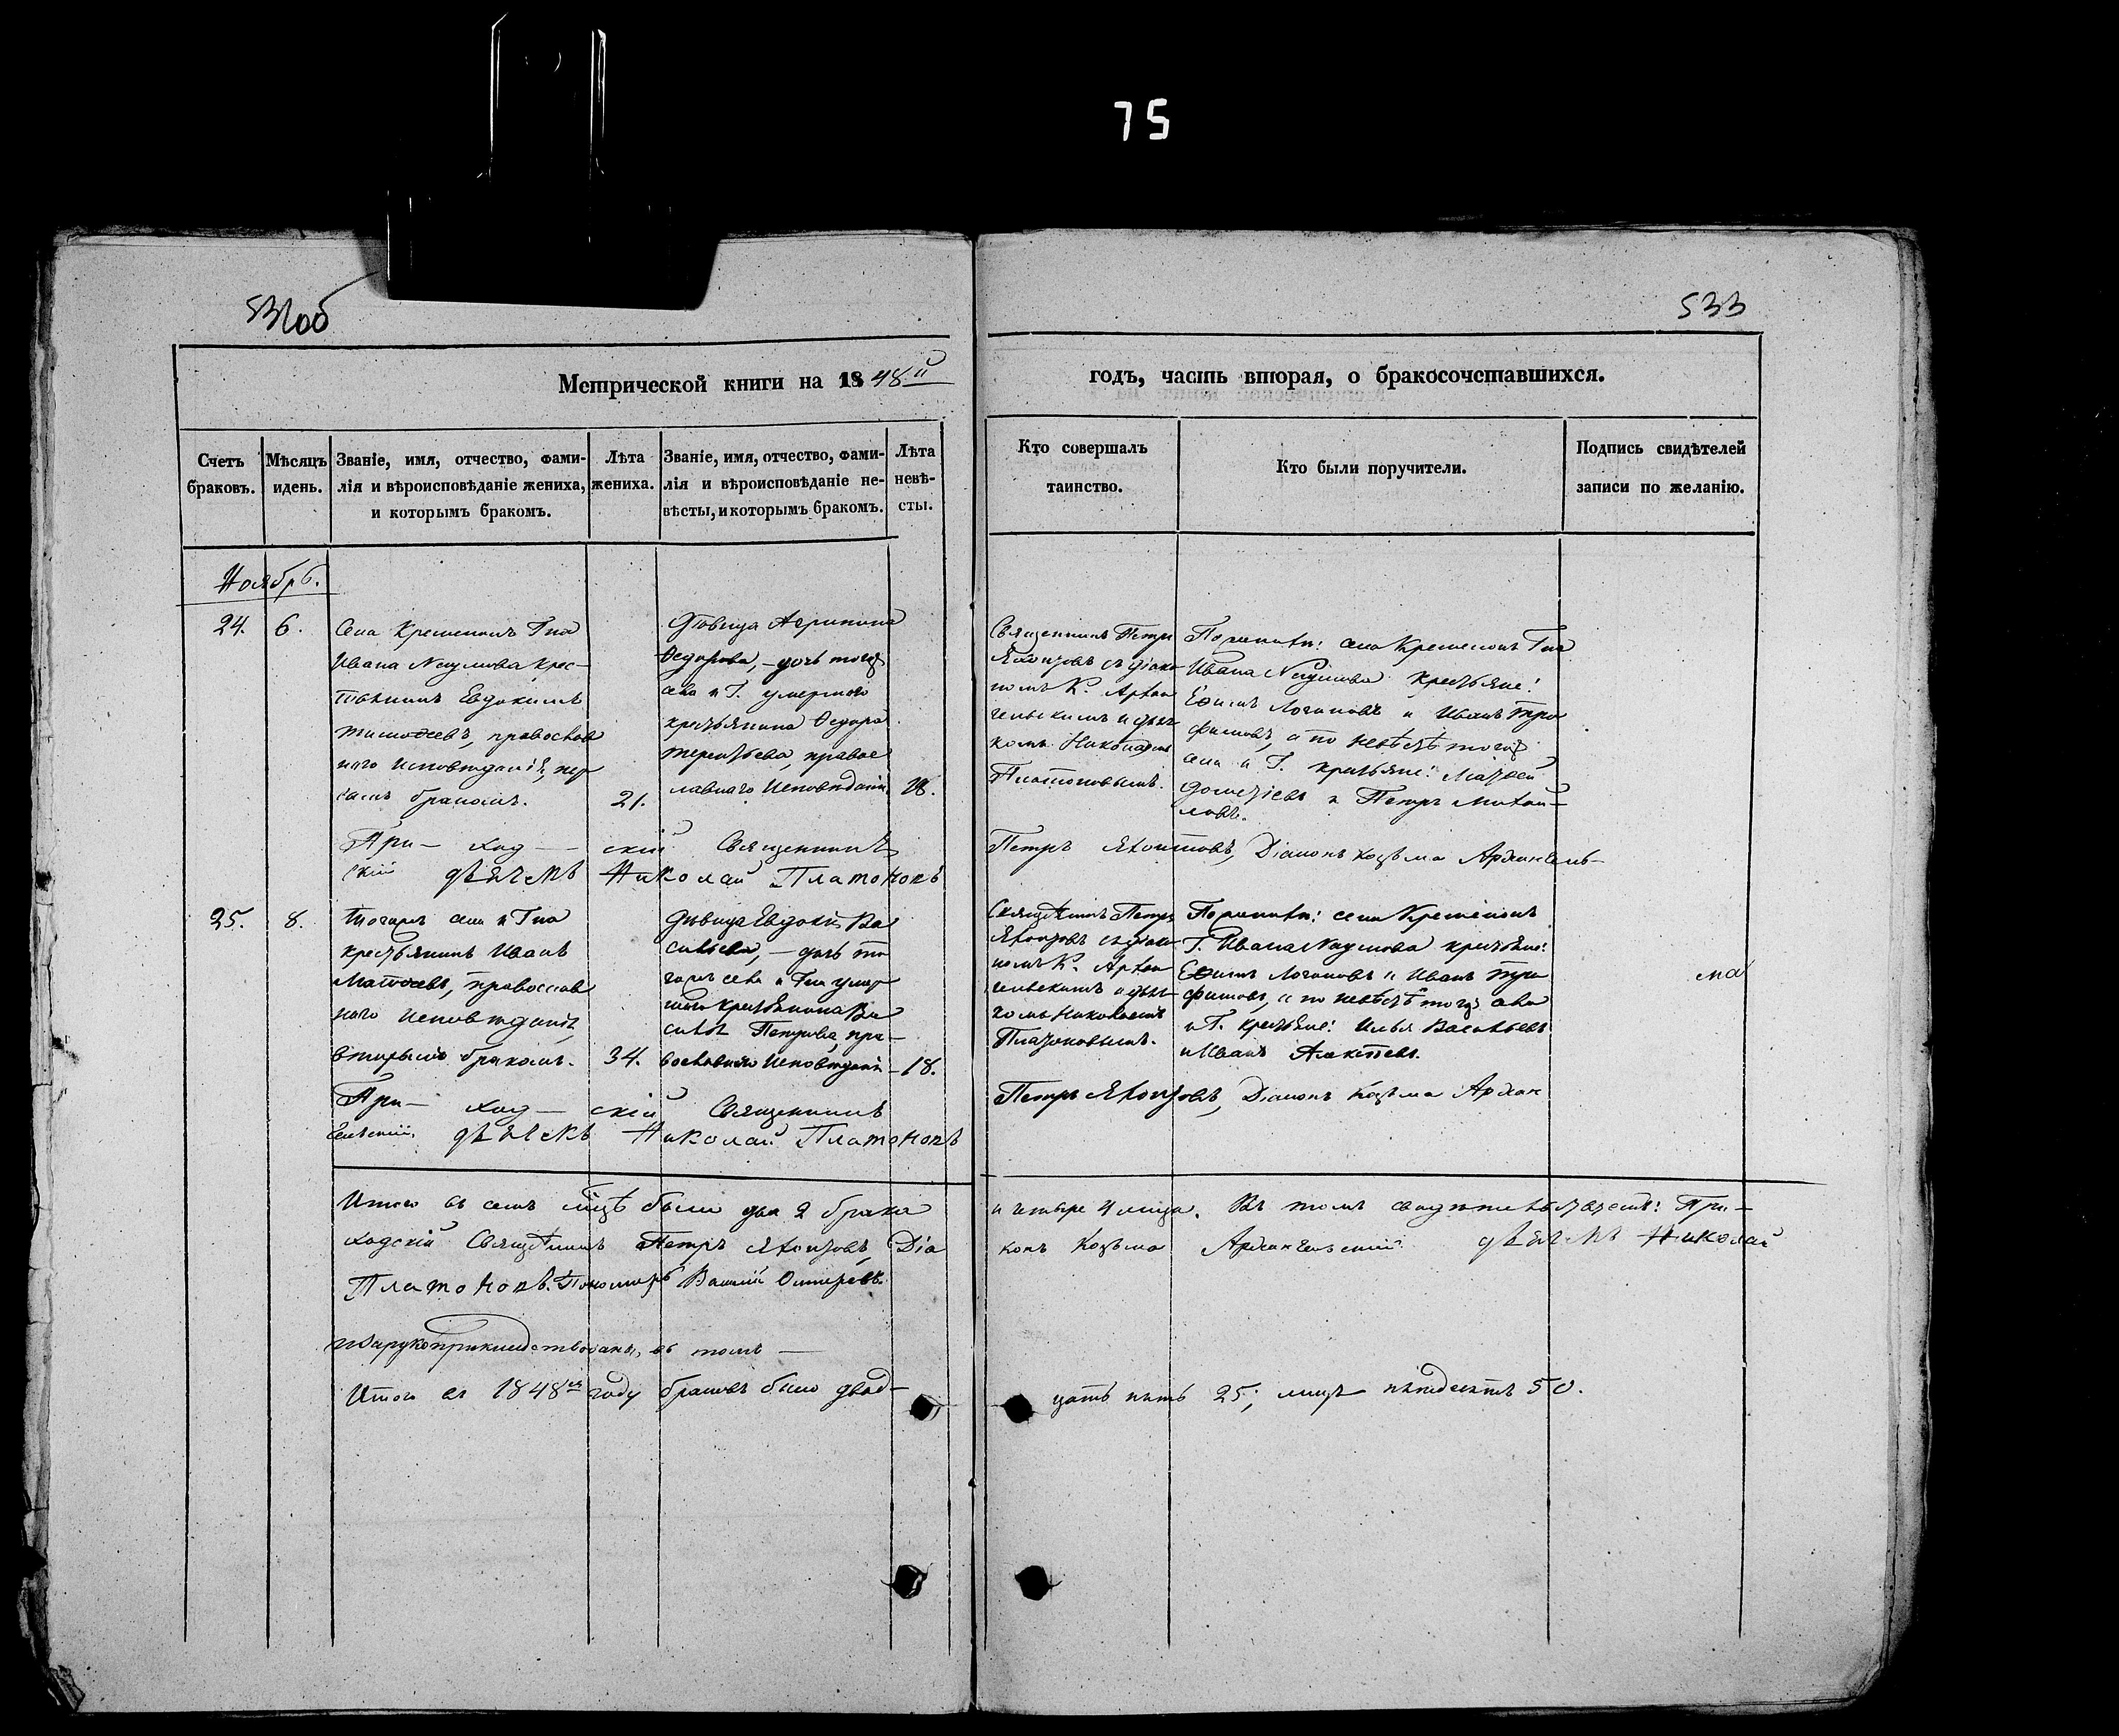 75
533
Метрической книги на 1848й
годъ, часть вторая, о бракосочетавшихся.
Счетъ браковъ.
Мѣсяцъ и день.
Званіе, имя, отчество, фами-
лія и вѣроисповѣданіе жениха,
и которымъ бракомъ.
Лѣта
жениха.
Званіе, имя, отчество, фами-
лія и вѣроисповѣданіе не-
вѣсты, и которымъ бракомъ.
Лѣта
невѣ-
сты.
Кто совершалъ
таинство.
Кто были поручители.
Подпись свидѣтелей
записи по желанію.
Ноябрь.
24.
6.
Села Кременокъ Гна
Ивана Наумова крес-
тьянинъ Евдокимъ
Тимофеевъ, православ
наго исповѣданія, пер
вымъ бракомъ.
21.
Дѣвица Агрипина
Федорова, – дочь тогожъ
села и Г. умершаго
крестьянина Федора
Терентьева, правос
лавнаго исповѣданія
18.
Священникъ Петръ
Яхонтовъ съ діако
номъ К. Архан
гельскимъ и дьяч
комъ Николаемъ
Платоновымъ.
По женихѣ: села Кременокъ Гна
Ивана Наумова крестьяне:
Ефимъ Логиновъ и Иванъ Тро
фимовъ, а по невѣстѣ тогожъ
села и Г. крестьяне: Матвей
Дометіевъ и Петръ Михай-
ловъ.
При- ход- скій Священникъ
Петръ Яхонтовъ, Діаконъ Козьма Архангель-
скій дьячекъ Николай Платоновъ
25.
8.
Тогожъ села и Гна
крестьянинъ Иванъ
Матвеевъ, православ
наго исповѣданія,
вторымъ бракомъ.
34.
Дѣвица Евдокія Ва
сильева, – дочь то
гожъ села и Гна умер
шаго крестьянина Ва
силья Петрова, пра-
вославнаго исповѣданія
18.
Священникъ Петръ
Яхонтовъ съ діако
номъ К. Архан
гельскимъ и дьяч
комъ Николаемъ
Платоновымъ.
По женихѣ: села Кременокъ
Г. Ивана Наумова крестьяне:
Ефимъ Логиновъ и Иванъ Тро
фимовъ, а по невѣстѣ тогожъ села
и Г. крестьяне: Илья Васильевъ
и Иванъ Алексѣевъ.
При- ход- скій Священникъ
Петръ Яхонтовъ, Діаконъ Козьма Архан
гельскій дьячекъ Николай Платоновъ
Итого въ семъ мцѣ было два 2 брака
и четыре 4 лица. Въ томъ свидѣтельствуетъ: При-
ходскій Священникъ Петръ Яхонтовъ, Діа
конъ Козьма Архангельскій дьячекъ Николай
Платоновъ. Пономарь Василій
Итого въ 1848мъ году браковъ было двад-
цать пять 25; лицъ пятьдесятъ 50.